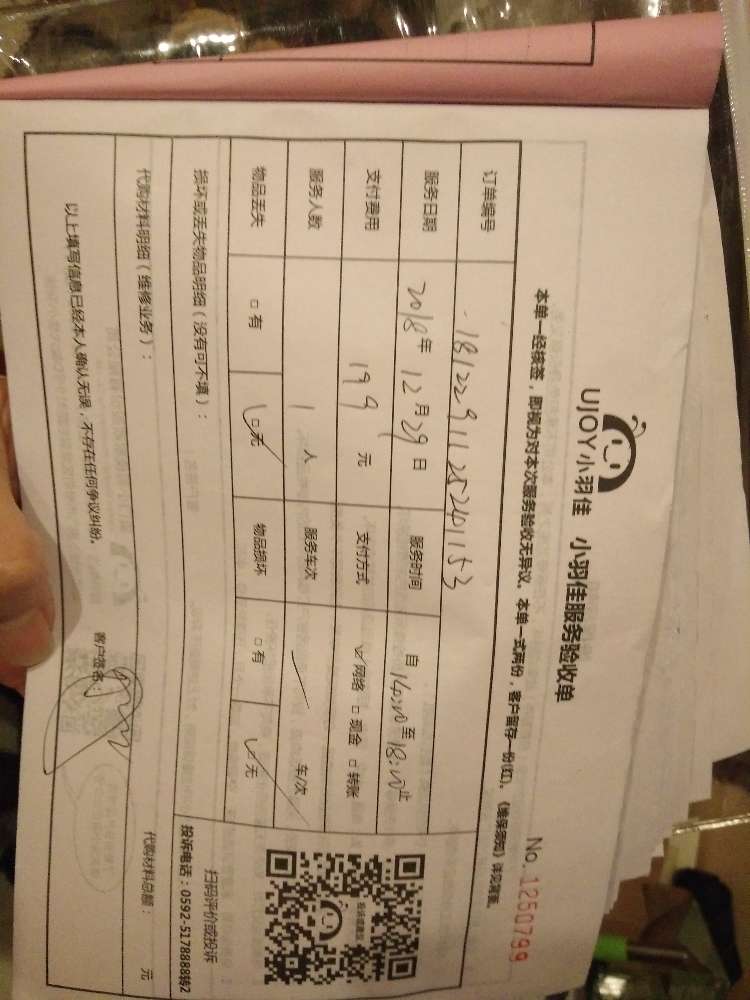 UJOY小羽佳 小羽佳服务验收单
No. 1250799
本单一经核签，即视为对本次服务验收无异议。本单一式两份，客户留存一份(红)。《维保须知》详见背面。
订单编号 1812291125241153
服务日期 2018年12月29日 服务时间 自14:00至18:00止
支付费用 199元 支付方式 ☑网络 □现金 □转账
服务人数 1人 服务车次 / 车/次
物品丢失 □有 ☑无 物品损坏 □有 ☑无
投诉或建议
扫码评价或投诉
投诉电话：0592-5178888转2
损坏或丢失物品明细（没有可不填）：
代购材料明细（维修业务）： 代购材料总额： 元
以上填写信息已经本人确认无误，不存在任何争议纠纷。 客户签名：